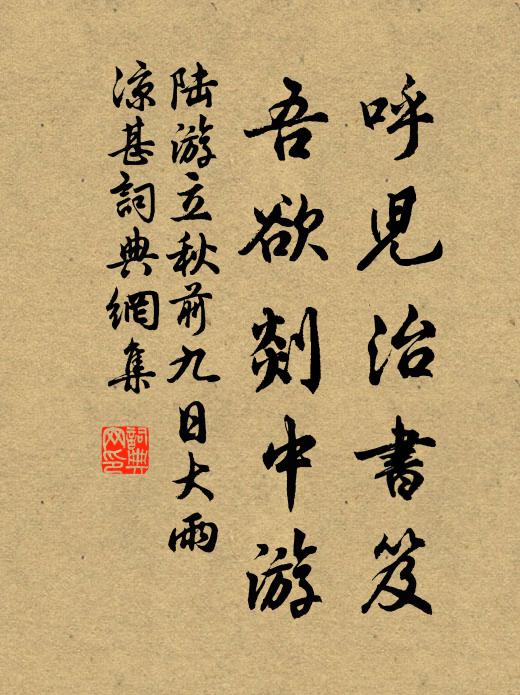 呼兒治書笈
吾欲剡中游
陸游立秋前九日大雨
凉甚詞典網集
詞典
网印